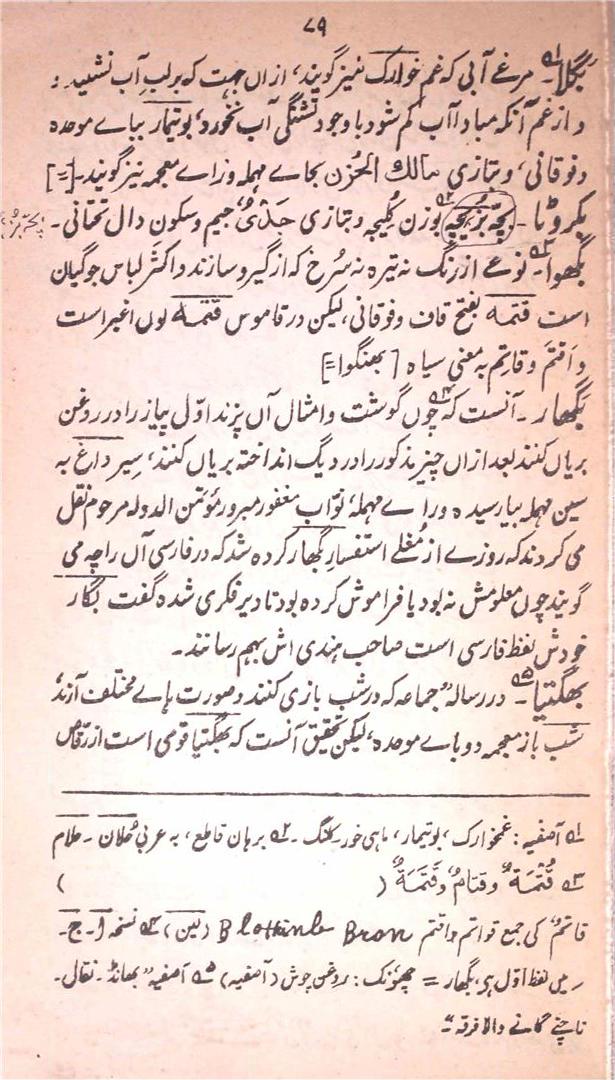 ۷۹
بَگلا۔ مرغے آبی کہ غم خوارک نیز گویند، ازاں جہت کہ برلبِ آب نشیند؛
و از غم آنکہ مبادا آب کم شود باوجود تشنگی آب نخورد، بوتیمار بباے موحدہ
و فوقانی، و بتازی مالک الحُزن بجاے مہملہ و زاے معجمہ نیز گویند۔ [=]
بکروٹا۔ بچّہ بُز بُزیچہ بوزن کُلیچہ و بتازی جَدْیٌ جیم و سکون دال تحتانی۔
بگھوا۔ نوعے از رنگ نہ تیرہ نہ سُرخ کہ از گیرو سازند و اکثر لباس جوگیان
است قتمہ بفتح قاف و فوقانی، لیکن در قاموس قتمہ لون اغبر است
و اَقتم و قاتِم بہ معنی سیاہ [بھنگوا=]
بگھار۔ آنست کہ چوں گوشت و امثال آں پزند اوّل پیاز را در روغن
بریاں کنند بعد ازاں چیز مذکور را در دیگ انداختہ بریاں کنند، سیر داغ بہ
سین مہملہ بیا رسیدہ و را ے مہملہ، نوّاب مغفور مبرور مؤتمن الدولہ مرحوم نقل
می کردند کہ روزے از مُغلے استفسارِ بگھار کردہ شد کہ در فارسی آں را چہ می
گویند چوں معلومش نہ بود یا فراموش کردہ بود تا دیر فکری شدہ گفت بگار
خودش لفظ فارسی است صاحب ہندی اش بہم رسانند۔
بھگتیا۔ در رسالہ ”جماعہ کہ در شب بازی کنند و صورت ہاے مختلف آرند،
شب باز معجمہ دو باے موحدہ“ لیکن تحقیق آنست کہ بھگتیا قومی است از رقّاص
۱؎ آصفیہ: غمخوارک، بوتیمار، ماہی خور۔ کلنگ۔ ۲؎ برہان قاطع، بہ عربی حُلان۔ حلام
۳؎ قُتْمَةٌ و قَتَامٌ، وَقَتَمَةٌ ( )
قاتمٌ کی جمع قواتم و اقتم Bron (لین) ۴؎ نسخہ ا۔ ج۔
میں لفظ اوّل ہی، بگھار = چھونک: روغن جوش (آصفیہ) ۵؎ آصفیہ ”بھانڈ۔ نقال۔
ناچنے گانے والا فرقہ“